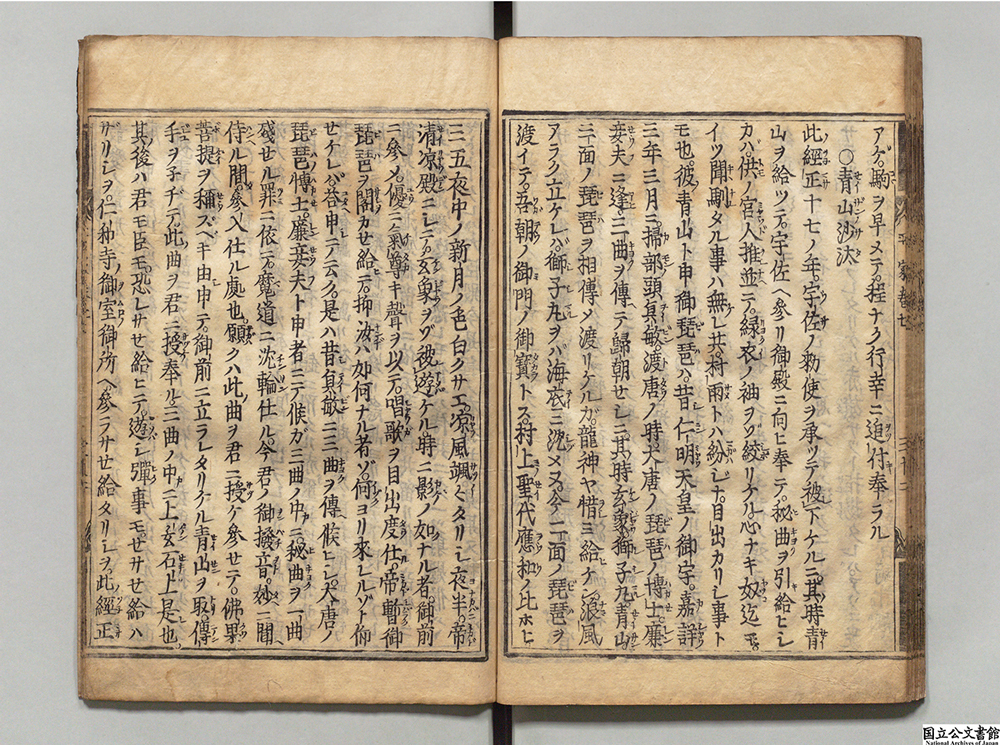 アゲ駒ヲ早メテ程ナク行幸ニ追付奉ラル
〇青山沙汰
此經正十七ノ年宇佐ノ勅使ヲ承ツテ被下ケルニ其時青
山ヲ給ツテ宇佐ヘ參リ御殿ニ向ヒ奉テ秘曲ヲ引給ヒシ
カバ供ノ宮人推並テ緑衣ノ袖ヲゾ絞リケル心ナキ奴迄モ
イツ聞馴タル事ハ無レ共村雨トハ紛シナ目出カリシ事ト
モ也彼青山ト申御琵琶ハ昔仁明天皇ノ御宇嘉詳
三年三月ニ掃部頭貞敏渡唐ノ時大唐ノ琵琶ノ博士廉
妾夫ニ逢三曲ヲ傳テ歸朝セシニ其時玄象獅子丸青山
三面ノ琵琶ヲ相傳メ渡リケルガ龍神ヤ惜ミ給ケン浪風
アラク立ケレバ獅子丸ヲバ海底ニ沈メヌ今二面ノ琵琶ヲ
渡イテ吾朝ノ御門ノ御寶トス村上聖代應和ノ比ホヒ
三五夜中ノ新月ノ色白クサエ凉風颯々タリシ夜半帝
清凉殿ニシテ玄象ヲゾ被遊ケル時ニ影ノ如ナル者御前
ニ參メ優ニ氣尊キ聲ヲ以テ唱歌ヲ目出度仕帝暫御
琵琶ヲ閣カセ給テ抑汝ハ如何ナル者ゾ何ヨリ來レルゾト仰
セケレバ答申テ云ク是ハ昔貞敏ニ三曲ヲ傳候ヒシ大唐ノ
琵琶博士廉妾夫ト申者ニテ候ガ三曲ノ中ニ秘曲ヲ一曲
殘セル罪ニ依テ魔道ニ沈輪仕ル今君ノ御撥音妙ニ聞
侍ル間參入仕ル處也願クハ此曲ヲ君ニ授ケ參セテ佛果
菩提ヲ稱スベキ由申テ御前ニ立ラレタリケル青山ヲ取傳
手ヲ子ヂテ此曲ヲ君ニ授奉ル三曲ノ中ニ上玄石上是也
其後ハ君モ臣モ恐レサセ給ヒテ遊シ彈事モセサセ給ハ
ザリシヲ仁和寺御室御所ヘ參ラサセ給タリシヲ此經正
平家卷七
国立公文書館
National Archives of Japan